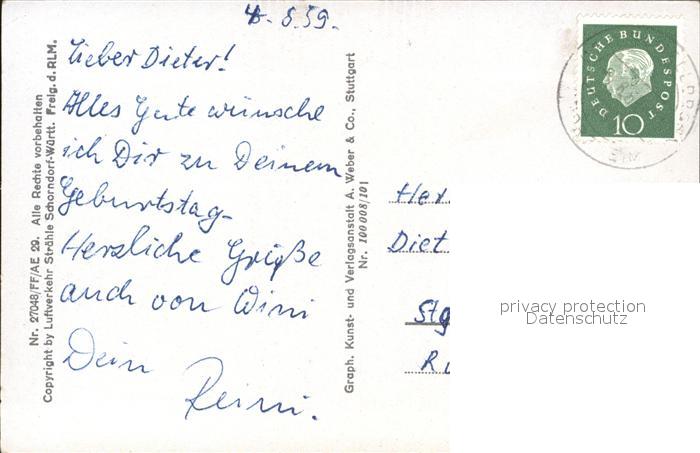 4.8.59.
Lieber Dieter!
Alles Gute wünsche
ich Dir zu Deinem
Geburtstag-
Herzliche Grüße
auch von Wini
Dein
Reini.
Nr. 27048/FF/AE 29. Alle Rechte vorbehalten
Copyright by Luftverkehr Strähle Schorndorf-Württ. Freig. d. RLM.
Graph. Kunst- und Verlagsanstalt A. Weber & Co., Stuttgart
Nr. 100 008/101
DEUTSCHE BUNDESPOST
10
Her
Diet
Stg
privacy protection
Datenschutz